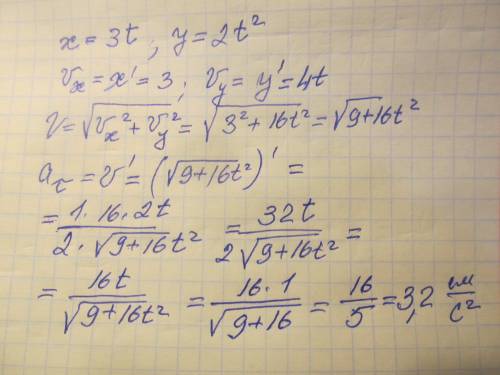 x = 3t ; y = 2t²
Vx = x' = 3 ; Vy = y' = 4t
V = √(Vx² + Vy²) = √(3² + 16t²) = √(9+16t²)
aτ = v' = (√(9+16t²))' =
= 1·16·2t / 2·√(9+16t²) = 32t / 2√(9+16t²) =
= 16t / √(9+16t²) = 16·1 / √(9+16) = 16/5 = 3,2 см/с²